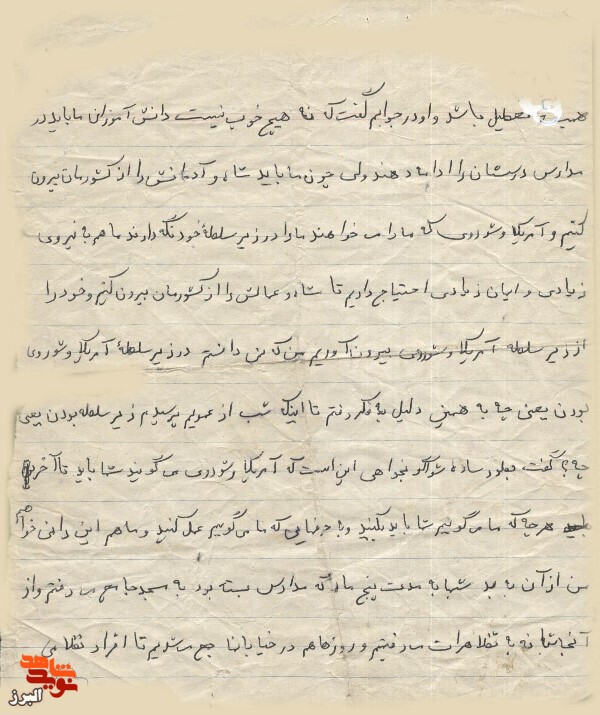 همیشه تعطیل باشد و او در جوابم گفت که نه هیچ خوب نیست دانش آموزان ما باید در
مدارس درسشان را ادامه دهند ولی چون ما باید شاه و آدمانش را از کشورمان بیرون
کنیم و آمریکا و شوروی که ما را می خواهند ما را در زیر سلطۀ خود نگه دارند ما هم به نیروی
زیادی و ایمان زیادی احتیاج داریم تا شاه و عمالش را از کشورمان بیرون کنیم و خود را
از زیر سلطه آمریکا و شوروی بیرون آوریم من که نمی دانستم در زیر سلطۀ آمریکا و شوروی
بودن یعنی چه به همین دلیل به فکر رفتم تا اینکه شب از عمویم پرسیدم زیر سلطه بودن یعنی
چه؟ گفت بطور ساده شواگو نخواهی این است که آمریکا و شوروی می گویند شما باید تا آخر
هر چه که ما می گوییم شما باید بکنید و به حرفهایی که ما می گوییم عمل کنید و ما هم این را نمی خواهیم
من از آن به بعد شبها به مدت پنج ماه که مدارس بسته بود به مسجد جامع می رفتم و از
آنجا شبانه به تظاهرات می رفتیم و روزها هم در خیابانها جمع می شدیم تا افراد نظامی
نوید شاهد
البرز